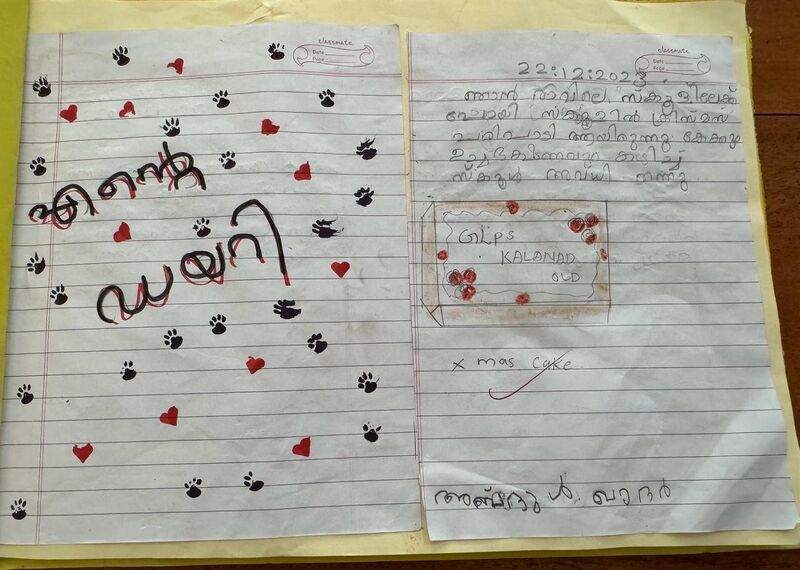 classmate
Date
Page
എന്റെ
ഡയറി
classmate
Date
Page
22:12:2023
ഞാൻ രാവിലെ സ്കൂളിലേക്ക്
പോയി സ്കൂളിൽ ക്രിസ്മസ്
പരിപാടി ആയിരുന്നു കേക്കും
കഴിച്ച്
സ്കൂൾ അവധി തന്നു
GLPS
KALANAD
OLD
x mas cake
അബ്ദുൾ ഖാദർ